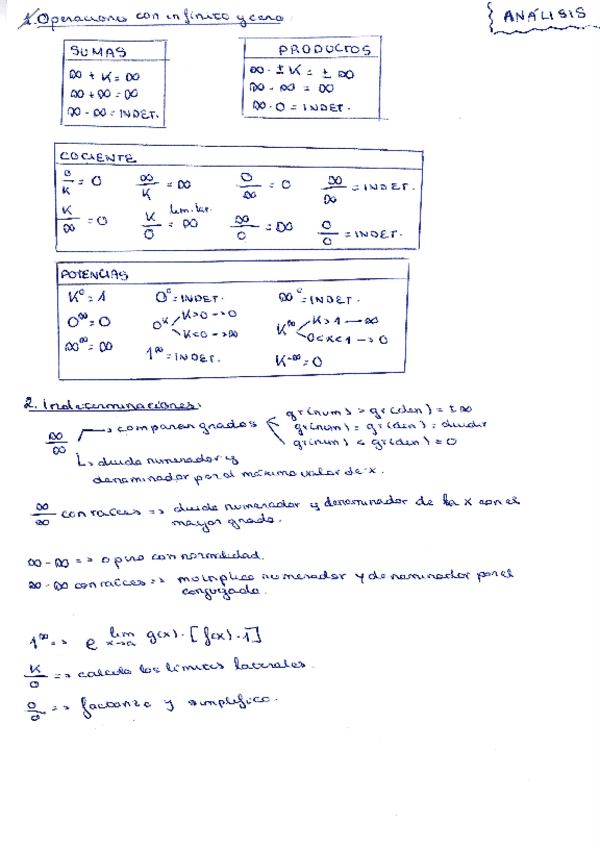 1. Operaciones con infinito y cero
{ ANÁLISIS
SUMAS
∞ + K = ∞
∞ + ∞ = ∞
∞ - ∞ = INDET.
PRODUCTOS
∞ · ± K = ± ∞
∞ · ∞ = ∞
∞ · 0 = INDET.
COCIENTE
0/K = 0 ∞/K = ∞ 0/∞ = 0 ∞/∞ = INDET.
K/∞ = 0 K/0 = ∞ lím. lat. ∞/0 = ∞ 0/0 = INDET.
POTENCIAS
K⁰ = 1 0⁰ = INDET. ∞⁰ = INDET.
0^∞ = 0 0^K K>0 → 0 K<0 → ∞ K^∞ K>1 → ∞ 0<K<1 → 0
∞^∞ = ∞ 1^∞ = INDET. K^-∞ = 0
2. Indeterminaciones:
∞/∞ → comparar grados
gr(num) > gr(den) = ± ∞
gr(num) = gr(den) = dividir
gr(num) < gr(den) = 0
↳ divido numerador y
denominador por el máximo valor de x.
∞/∞ con raíces => divido numerador y denominador de la x con el
mayor grado.
∞ - ∞ => opero con normalidad.
∞ - ∞ con raíces => multiplico numerador y denominador por el
conjugado.
1^∞ => e^ lim x→a g(x) · [f(x) - 1]
K/0 => calculo los límites laterales.
0/0 => factorizo y simplifico.